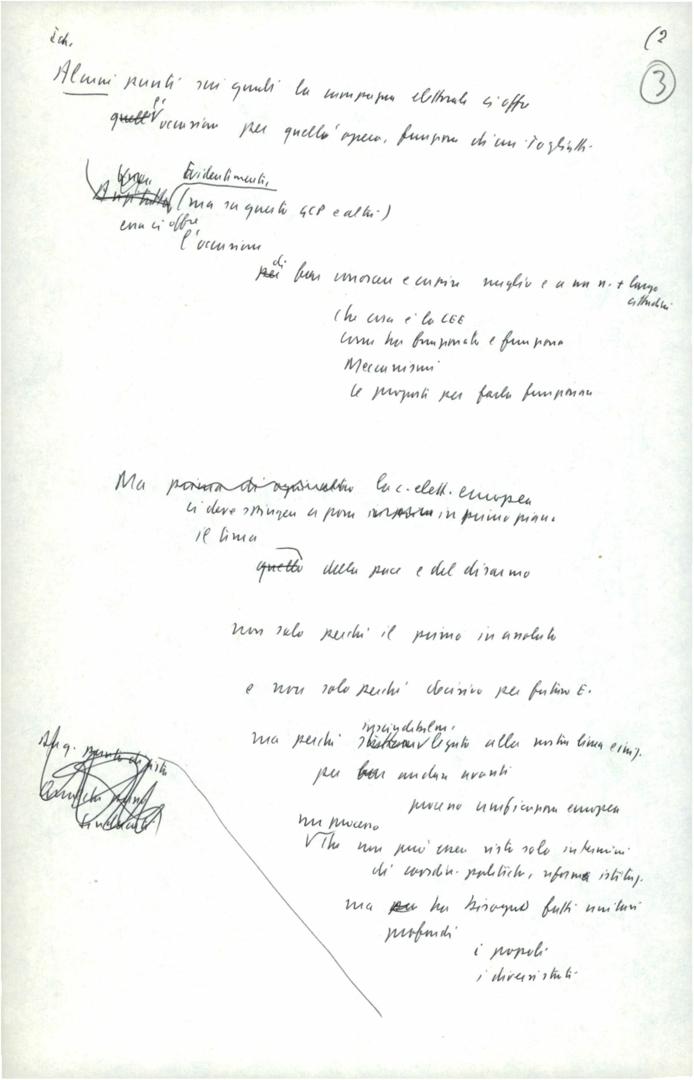 (2
3
Alcuni punti sui quali la campagna elettorale ci offre
l'occasione per quella opera, funzione di cui Togliatti.
Evidentemente,
(ma su questo GCP e altri)
essa ci offre
l'occasione
di ben conoscere e capire meglio e a un n. + largo
cittadini
Che cosa è la CEE
come ha funzionato e funziona
Meccanismi
le proposte per farla funzionare
Ma la c. elett. europea
ci deve a porre in primo piano
il tema
della pace e del disarmo
non solo perché il primo in assoluto
e non solo perché decisivo per futuro E.
ma perché legato alla nostra
per andare avanti
processo unificazione europea
un processo
che non può esser visto solo in termini
di coordin. politiche, riforma istituz.
ma ha bisogno fatti unitari
profondi
i popoli
i diversi stati